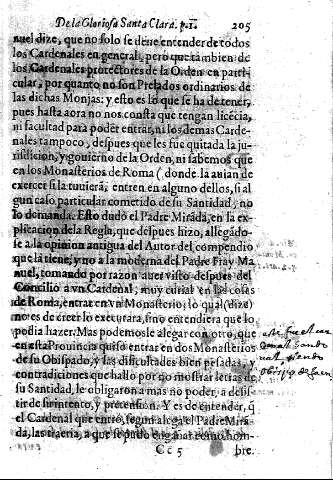 De la Gloriosa Santa Clara. p.1. 205
nuel dize, que no solo se deue entender de todos
los Cardenales en general, pero que tambien de
los Cardenales protectores de la Orden en parti-
cular, por quanto no son Prelados ordinarios de
las dichas Monjas: y esto es lo que se ha de tener,
pues hasta aora no nos consta que tengan licécia,
ni facultad para poder entrar, ni los demas Carde-
nales tampoco, despues que les fue quitada la ju-
risdicion, y gouierno de la Orden, ni sabemos que
en los Monasterios de Roma (donde la auian de
exercer si la tuuierã, entren en alguno dellos, si al
gun caso particular cometido de su Santidad, no
lo demanda. Esto dudò el Padre Mirãda, en la ex-
plicacion de la Regla, que despues hizo, allegádo-
se a la opinion antigua del Autor del compendio
que la tiene, y no a la moderna del Padre Fray Ma
nuel, tomando por razon auer visto despues del
Concilio a vn Cardenal, muy curial en las cosas
de Roma, entrar en vn Monasterio, lo qual (dize)
no es de creer lo executara, sino entendiera que lo
podia hazer. Mas podemosle alegar con otro, que
en esta Prouincia quiso entrar en dos Monasterios
de su Obispado, y las dificultades bien pesadas, y
contradiciones que hallò por no mostrar letras de
su Santidad, le obligaron a mas no poder, a desis-
tir de su intento, y pretension. Y es de entender, q̃
el Cardenal que entrò, segun alega el Padre Mira-
da, las traeria, a que se pudo engañar como hom-
Cc 5 bre.
Obispo de Jaen